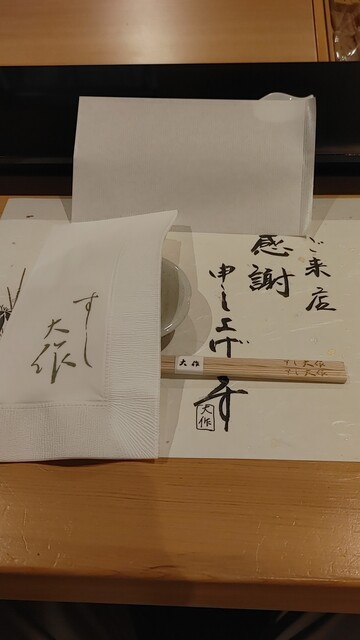 ご来店
感謝
申し上げます
大作
すし
大作
大作
すし大作
すし大作